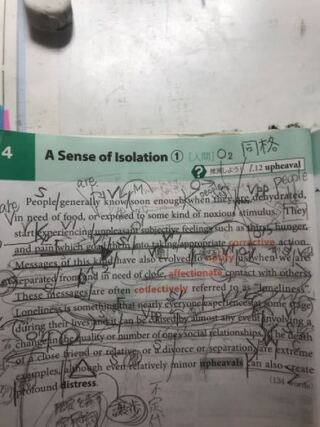 4 A Sense of Isolation ① [人間] O₂ 同格
? 推測しよう l.12 upheaval
S are V M V pp people
People generally know soon enough when they are dehydrated,
in need of food, or exposed to some kind of noxious stimulus. They
start experiencing unpleasant subjective feelings such as thirst, hunger,
and pain which goad them into taking appropriate corrective action.
Messages of this kind have also evolved to notify us when we are
separated from and in need of close, affectionate contact with others.
These messages are often collectively referred to as "loneliness".
Loneliness is something that nearly everyone experiences at some stage
during their lives and it can be caused by almost any event involving a
change in the quality or number of one's social relationships. The death
of a close friend or relative, or a divorce or separation, are extreme
examples, although even relatively minor upheavals can also create
profound distress.
(134 words)